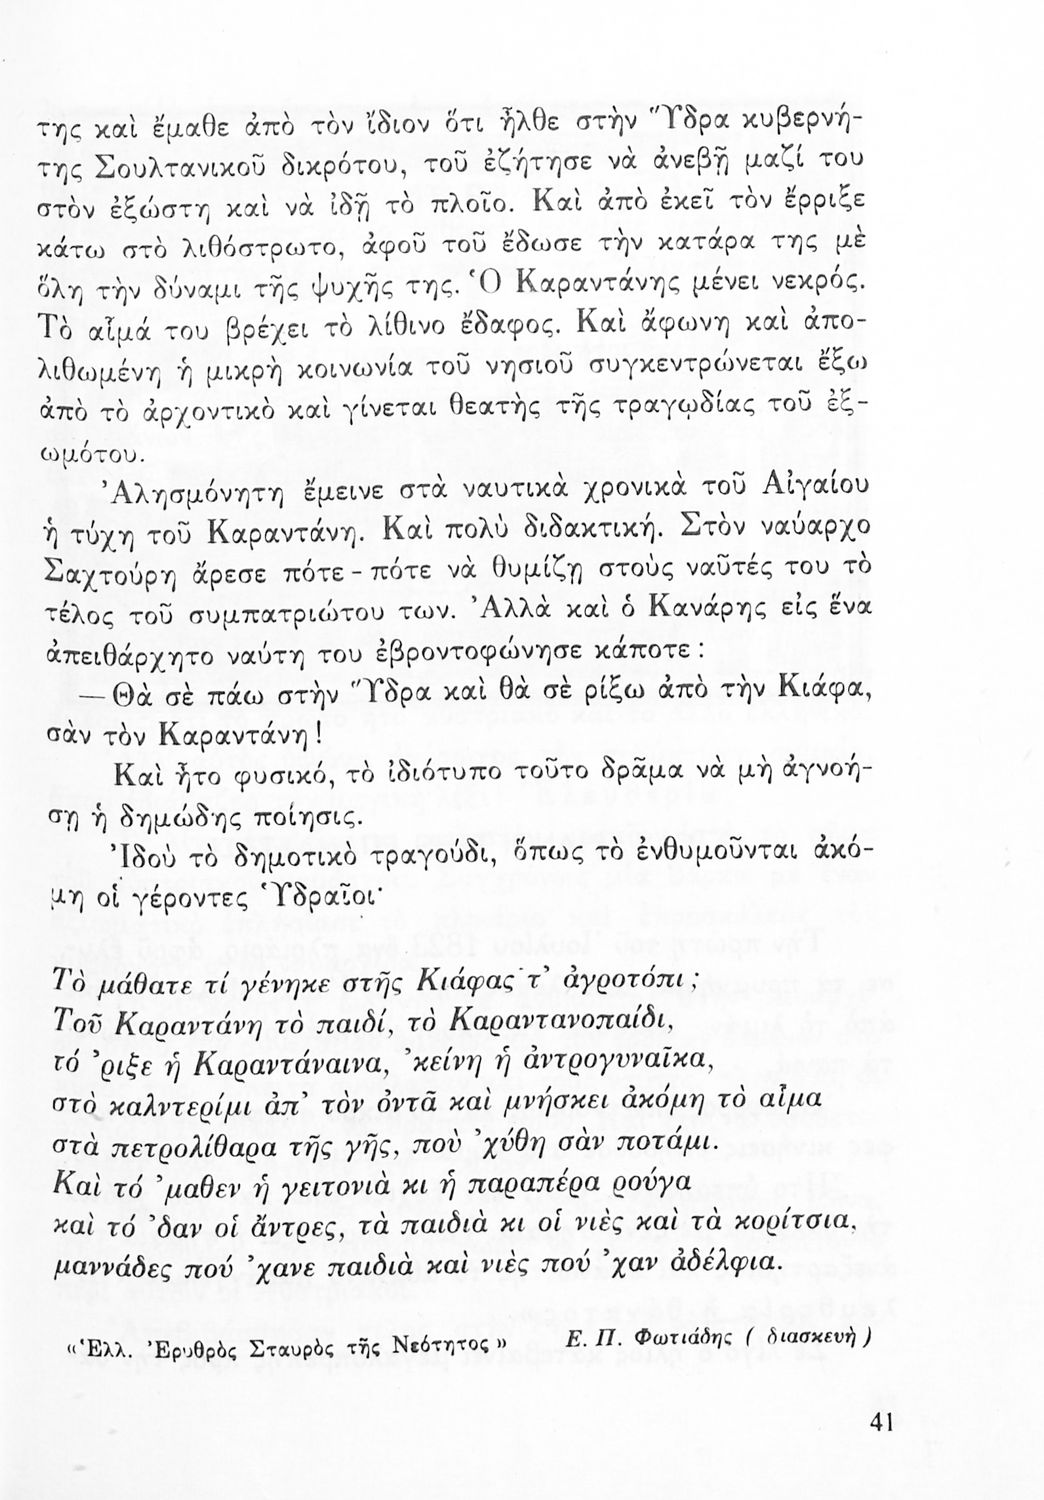 της καὶ ἔμαθε ἀπὸ τὸν ἴδιον ὅτι ἦλθε στὴν Ὕδρα κυβερνή-
της Σουλτανικοῦ δικρότου, τοῦ ἐζήτησε νὰ ἀνεβῇ μαζί του
στὸν ἐξώστη καὶ νὰ ἰδῇ τὸ πλοῖο. Καὶ ἀπὸ ἐκεῖ τὸν ἔρριξε
κάτω στὸ λιθόστρωτο, ἀφοῦ τοῦ ἔδωσε τὴν κατάρα της μὲ
ὅλη τὴν δύναμι τῆς ψυχῆς της. Ὁ Καραντάνης μένει νεκρός.
Τὸ αἷμά του βρέχει τὸ λίθινο ἔδαφος. Καὶ ἄφωνη καὶ ἀπο-
λιθωμένη ἡ μικρὴ κοινωνία τοῦ νησιοῦ συγκεντρώνεται ἔξω
ἀπὸ τὸ ἀρχοντικὸ καὶ γίνεται θεατὴς τῆς τραγῳδίας τοῦ ἐξ-
ωμότου.
Ἀλησμόνητη ἔμεινε στὰ ναυτικὰ χρονικὰ τοῦ Αἰγαίου
ἡ τύχη τοῦ Καραντάνη. Καὶ πολὺ διδακτική. Στὸν ναύαρχο
Σαχτούρη ἄρεσε πότε - πότε νὰ θυμίζῃ στοὺς ναῦτές του τὸ
τέλος τοῦ συμπατριώτου των. Ἀλλὰ καὶ ὁ Κανάρης εἰς ἕνα
ἀπειθάρχητο ναύτη του ἐβροντοφώνησε κάποτε :
— Θὰ σὲ πάω στὴν Ὕδρα καὶ θὰ σὲ ρίξω ἀπὸ τὴν Κιάφα,
σὰν τὸν Καραντάνη !
Καὶ ἦτο φυσικό, τὸ ἰδιότυπο τοῦτο δρᾶμα νὰ μὴ ἀγνοή-
σῃ ἡ δημώδης ποίησις.
Ἰδοὺ τὸ δημοτικὸ τραγούδι, ὅπως τὸ ἐνθυμοῦνται ἀκό-
μη οἱ γέροντες Ὑδραῖοι·
Τὸ μάθατε τί γένηκε στῆς Κιάφας τ' ἀγροτόπι ;
Τοῦ Καραντάνη τὸ παιδί, τὸ Καραντανοπαίδι,
τό 'ριξε ἡ Καραντάναινα, 'κείνη ἡ ἀντρογυναῖκα,
στὸ καλντερίμι ἀπ' τὸν ὀντᾶ καὶ μνήσκει ἀκόμη τὸ αἷμα
στὰ πετρολίθαρα τῆς γῆς, ποὺ 'χύθη σὰν ποτάμι.
Καὶ τό 'μαθεν ἡ γειτονιὰ κι ἡ παραπέρα ρούγα
καὶ τό 'δαν οἱ ἄντρες, τὰ παιδιὰ κι οἱ νιὲς καὶ τὰ κορίτσια,
μαννάδες πού 'χανε παιδιὰ καὶ νιὲς πού 'χαν ἀδέλφια.
«Ἑλλ. Ἐρυθρὸς Σταυρὸς τῆς Νεότητος» Ε. Π. Φωτιάδης ( διασκευὴ )
41